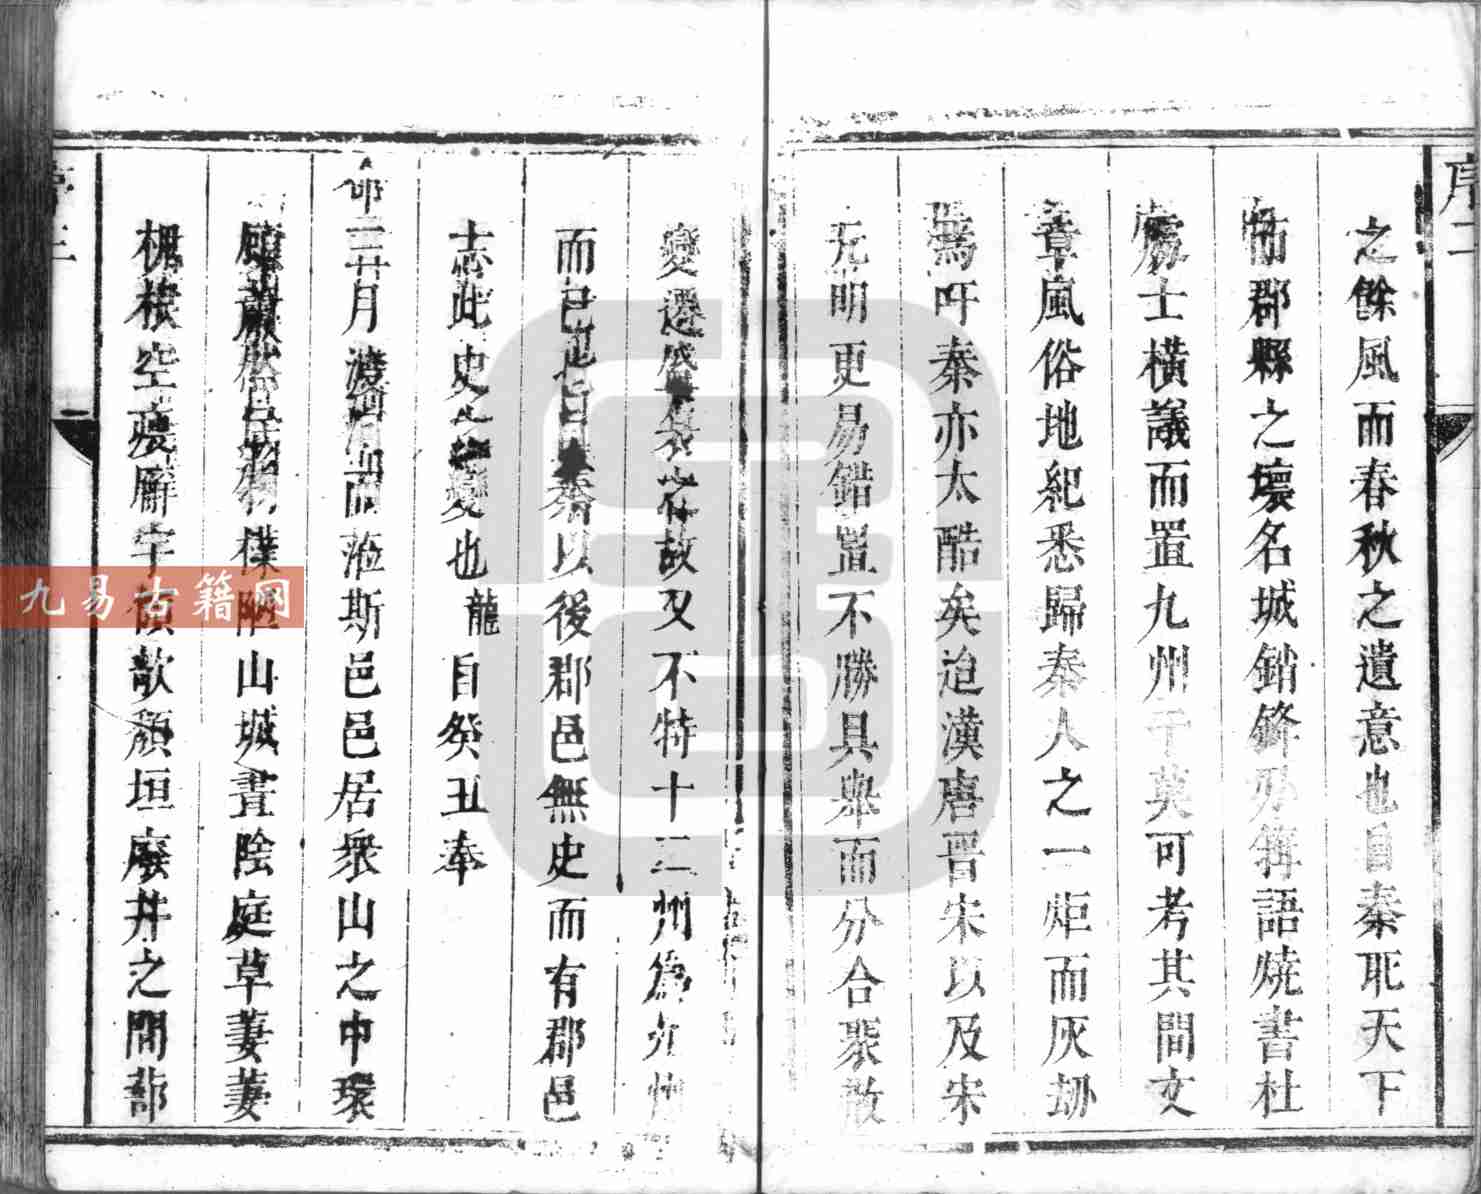 序二
之餘風而春秋之遺意也自秦取天下
郡縣之壞名城銷鋒刃偶語燒書杜
處士橫議而置九州于莫可考其間文
章風俗地紀悉歸秦人之一炬而灰刼
焉吁秦亦太酷矣迨漢唐晉宋以及宋
元明更易錯置不勝具舉而分合聚散
變遷盛衰之故又不特十二州為九州
而已也自秦以後郡邑無史而有郡邑
志此史之變也龍自癸丑奉
命二月渡河而蒞斯邑邑居衆山之中環
山城晝陰庭草萋萋
槐棲空廨宇傾欹頹垣廢井之間蔀
序三
九易古籍网